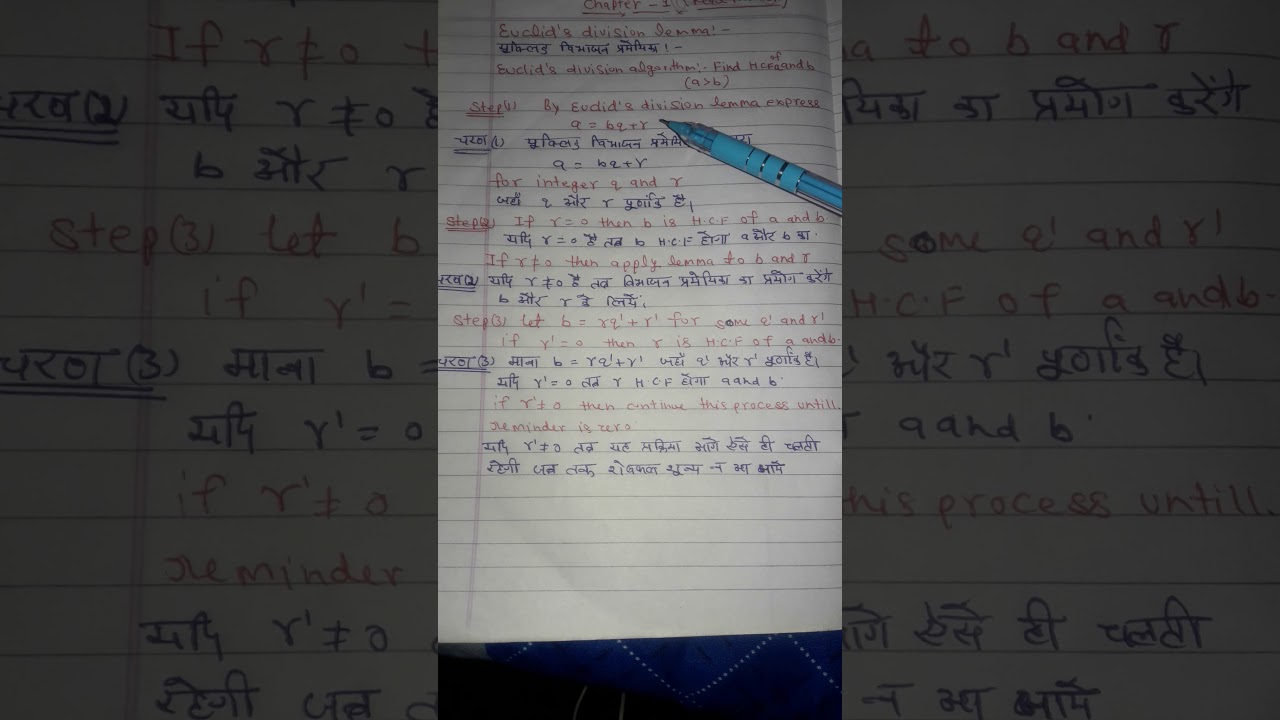 Chapter - 1
Euclid's division lemma! -
यूक्लिड विभाजन प्रमेयिका! -
Euclid's division algorithm:- Find H.C.F of a and b
(a>b)
Step(1) By Euclid's division lemma express
a = bq+r
चरण(1) यूक्लिड विभाजन
a = bq+r
for integer q and r
जहाँ q और r पूर्णांक है।
Step(2) If r=0 then b is H.C.F of a and b.
यदि r=0 है तब b H.C.F होगा a और b का.
If r≠0 then apply lemma to b and r
चरण(2) यदि r≠0 है तब विभाजन प्रमेयिका का प्रयोग करेंगे
b और r के लिये।
Step(3) let b = rq'+r' for some q' and r'
if r'=0 then r is H.C.F of a and b.
चरण(3) माना b = rq'+r' जहाँ q' और r' पूर्णांक है।
यदि r'=0 तब r H.C.F होगा a and b.
if r'≠0 then continue this process untill.
reminder is zero.
यदि r'≠0 तब यह प्रक्रिया आगे ऐसे ही चलती
रहेगी जब तक शेषफल शून्य न आ जाये